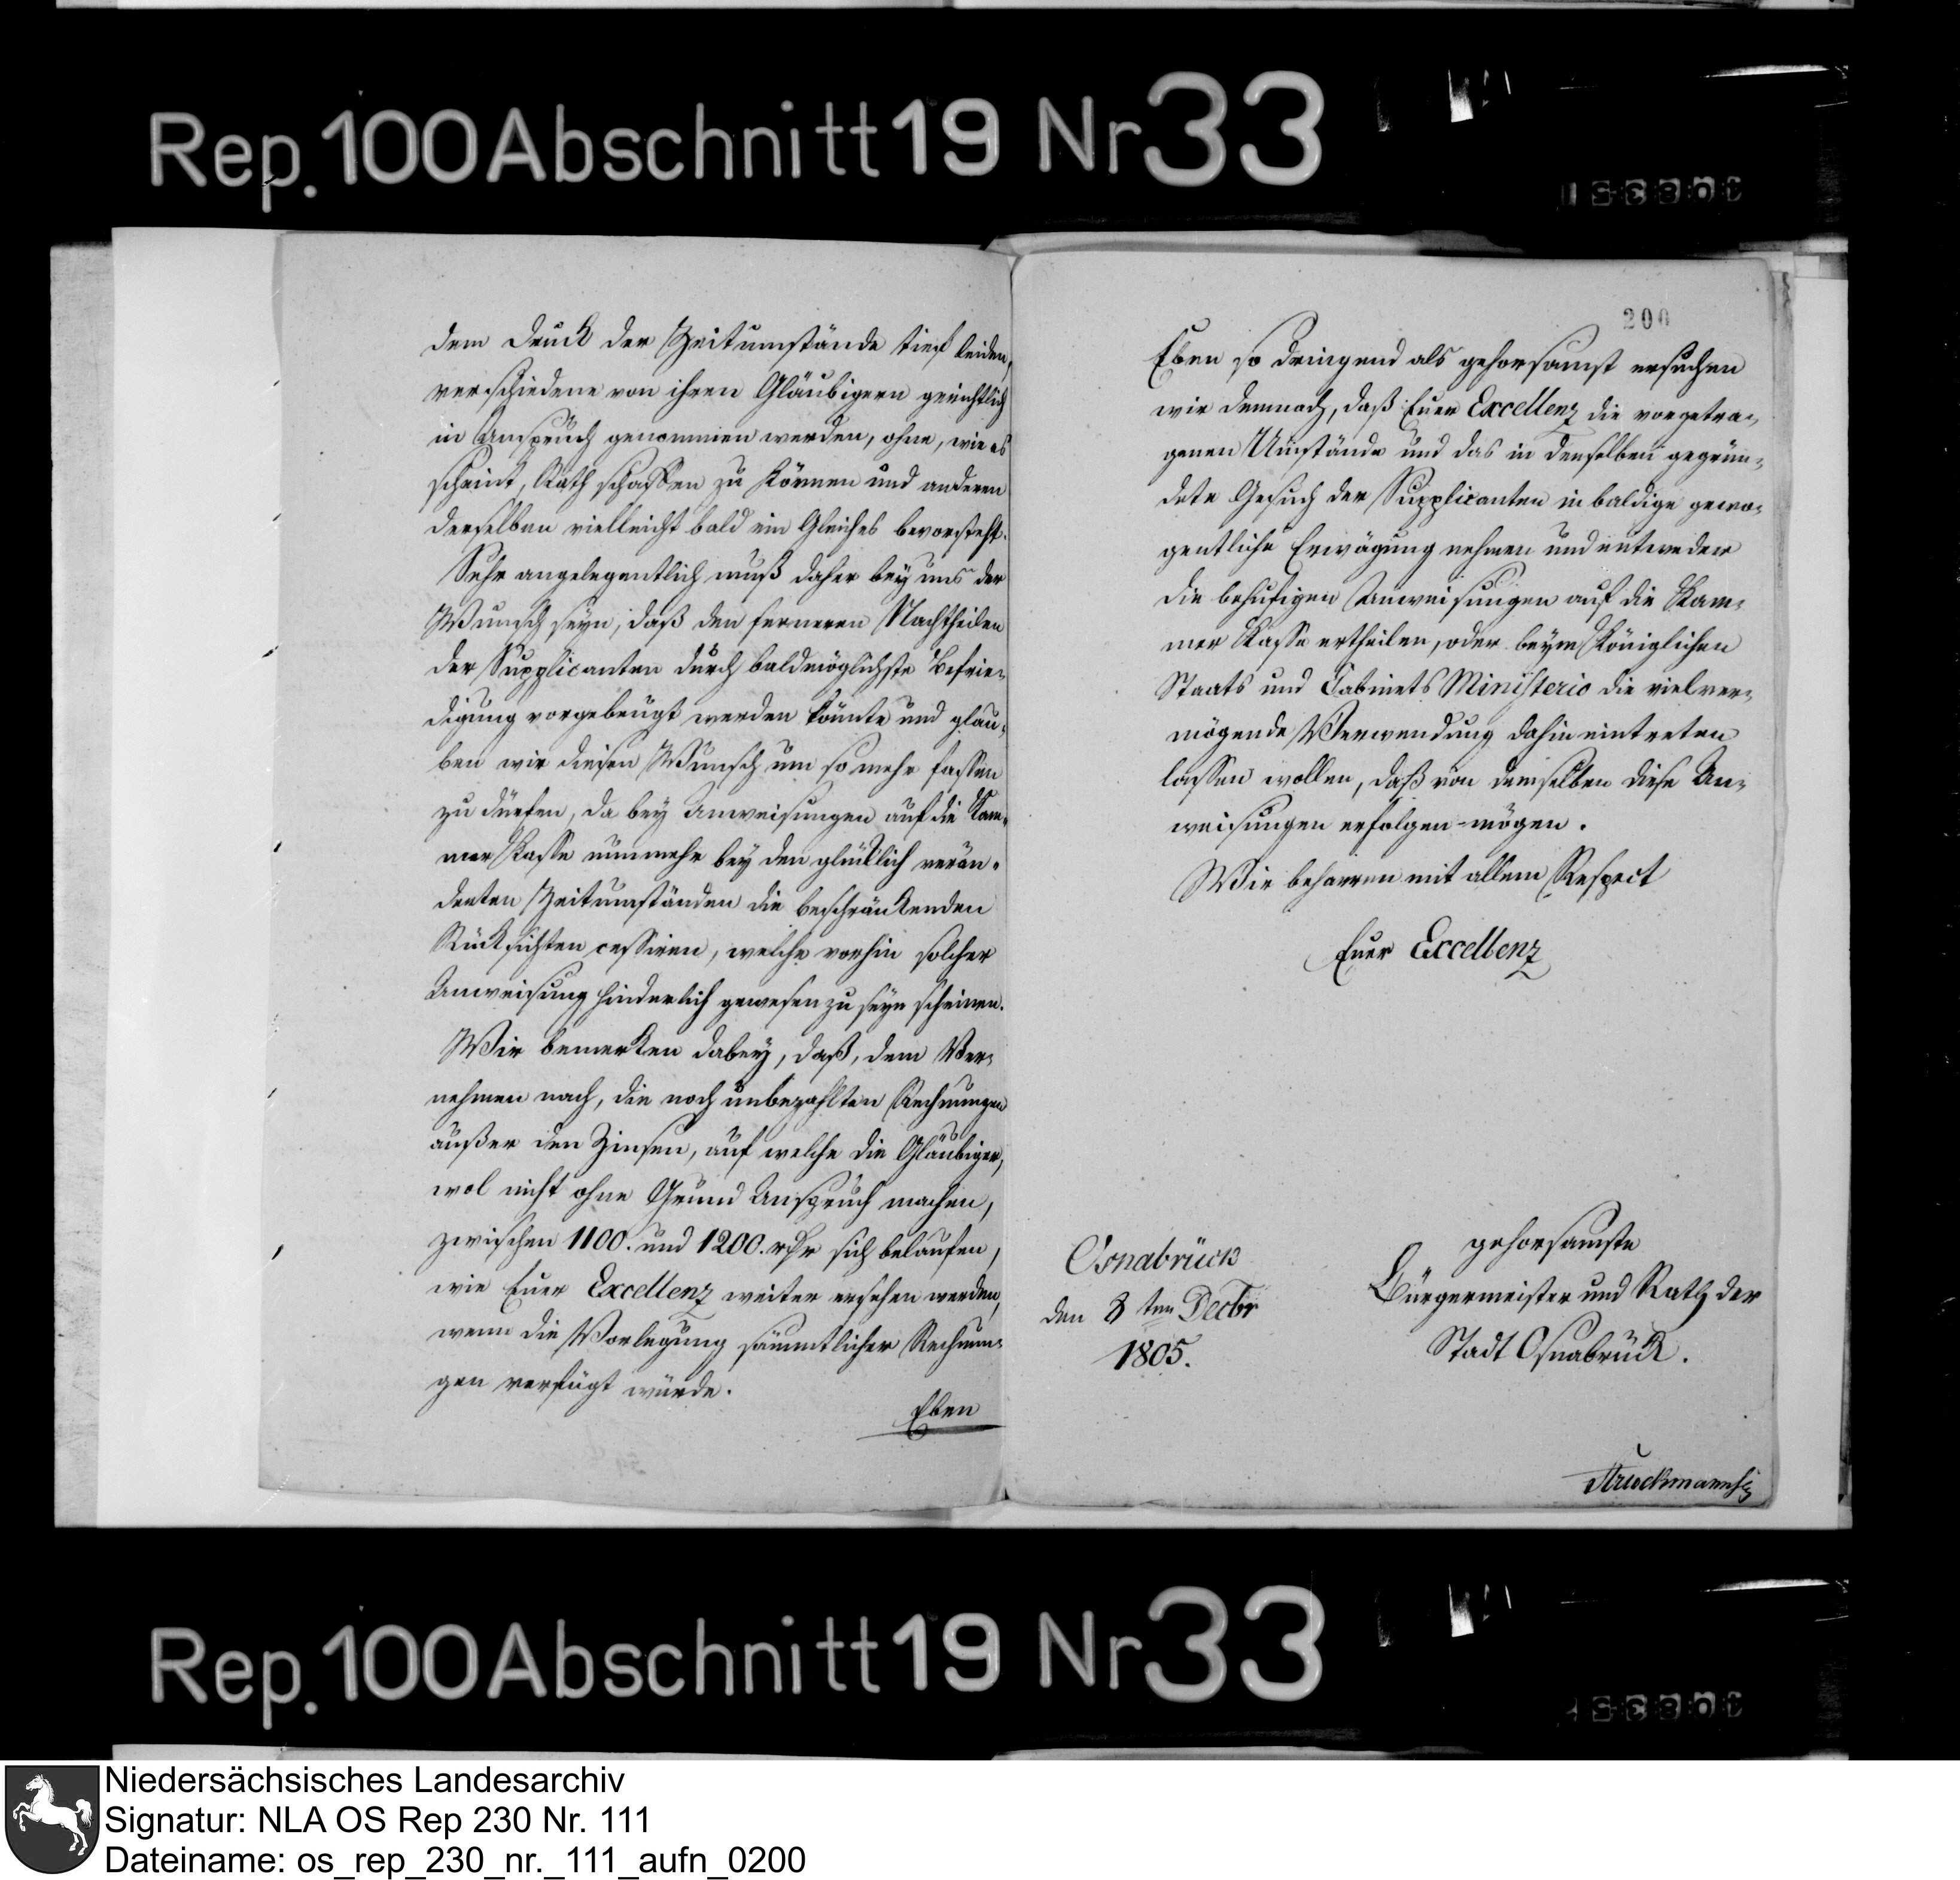 Rep. 100 Abschnitt 19 Nr 33
dem Druck der Zeitumstände tief leiden,
verschiedene von ihren Gläubigern gerichtlich
in Anspruch genommen werden, ohne, wie es
scheint, Rath schaffen zu können und anderen
derselben vielleicht bald ein Gleiches bevorsteht.
Sehr angelegentlich muß daher bey uns der
Wunsch seyn, daß den ferneren Nachtheilen
der Supplicanten durch baldmöglichste Befrie-
digung vorgebeugt werden könnte und glau-
ben wir diesen Wunsch um so mehr fassen
zu dürfen, da bey Anweisungen auf die Kam-
mer Kasse nunmehr bey den glücklich verän-
derten Zeitumständen die beschränkenden
Rücksichten cessiren, welche vorhin solcher
Anweisung hinderlich gewesen zu seyn scheinen.
Wir bemerken dabey, daß, dem Ver-
nehmen nach, die noch unbezahlten Rechnungen
außer den Zinsen, auf welche die Gläubiger,
wol nicht ohne Grund Anspruch machen,
zwischen 1100. und 1200. rthr sich belaufen,
wie Euer Excellenz weiter ersehen werden,
wenn die Vorlegung sämmtlicher Rechnun-
gen verfügt würde.
Eben
200
Eben so dringend als gehorsamst ersuchen
wir demnach, daß Euer Excellenz die vorgetra-
genen Umstände und das in denselben gegrün-
dete Gesuch der Supplicanten in baldige gewo-
gentliche Erwägung nehmen und entweder
die behufigen Anweisungen auf die Kam-
mer Kasse ertheilen, oder beym Königlichen
Staats und Cabinets Ministerio die vielver-
mögende Verwendung dahin eintreten
lassen wollen, daß von demselben diese An-
weisungen erfolgen mögen.
Wir beharren mit allem Respect
Euer Excellenz
gehorsamste
Bürgermeister und Rath der
Stadt Osnabrück.
Osnabrück
den 8ten Decbr
1805.
Struckmann
Rep. 100 Abschnitt 19 Nr 33
Niedersächsisches Landesarchiv
Signatur: NLA OS Rep 230 Nr. 111
Dateiname: os_rep_230_nr._111_aufn_0200